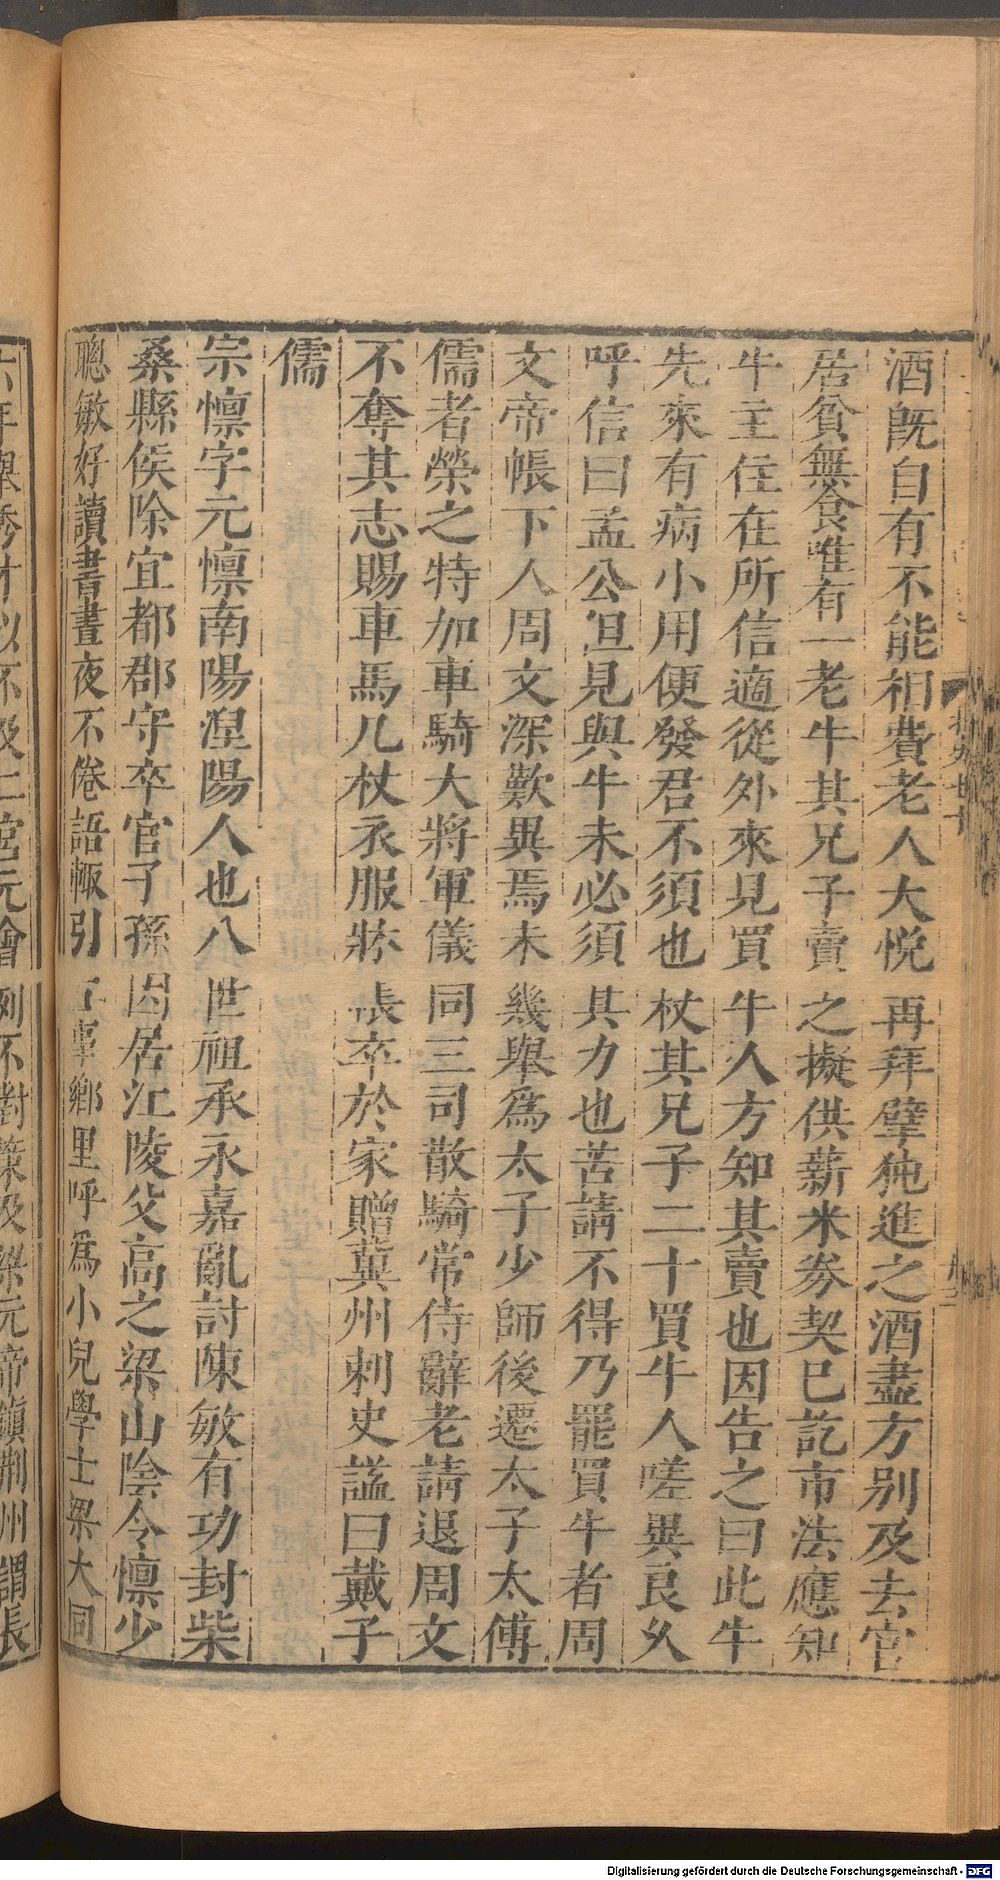 酒旣自有不能相費老人大悅再拜擘㹠進之酒盡方别及去官
居貧無食唯有一老牛其兄子賣之擬供薪米劵契已訖市法應知
牛主住在所信適從外來見買牛人方知其賣也因告之曰此牛
先來有病小用便發君不須也杖其兄子二十買牛人嗟異良久
呼信曰孟公但見與牛未必須其力也苦請不得乃罷買牛者周
文帝帳下人周文深歎異焉未幾舉爲太子少師後遷太子太傅
儒者榮之特加車騎大將軍儀同三司散騎常侍辭老請退周文
不奪其志賜車馬几杖衣服牀帳卒於家贈兾州刺史謚曰戴子
儒
宗懍字元懍南陽湼陽人也八世祖承永嘉亂討陳敏有功封柴
桑縣侯除宜都郡守卒官子孫因居江陵父高之梁山陰令懍少
聰敏好讀書晝夜不倦語輒引古事鄉里呼爲小兒學士梁大同
六年舉秀才以不及二宮元會例不對策及梁元帝鎮荆州謂長
Digitalisierung gefördert durch die Deutsche Forschungsgemeinschaft - DFG